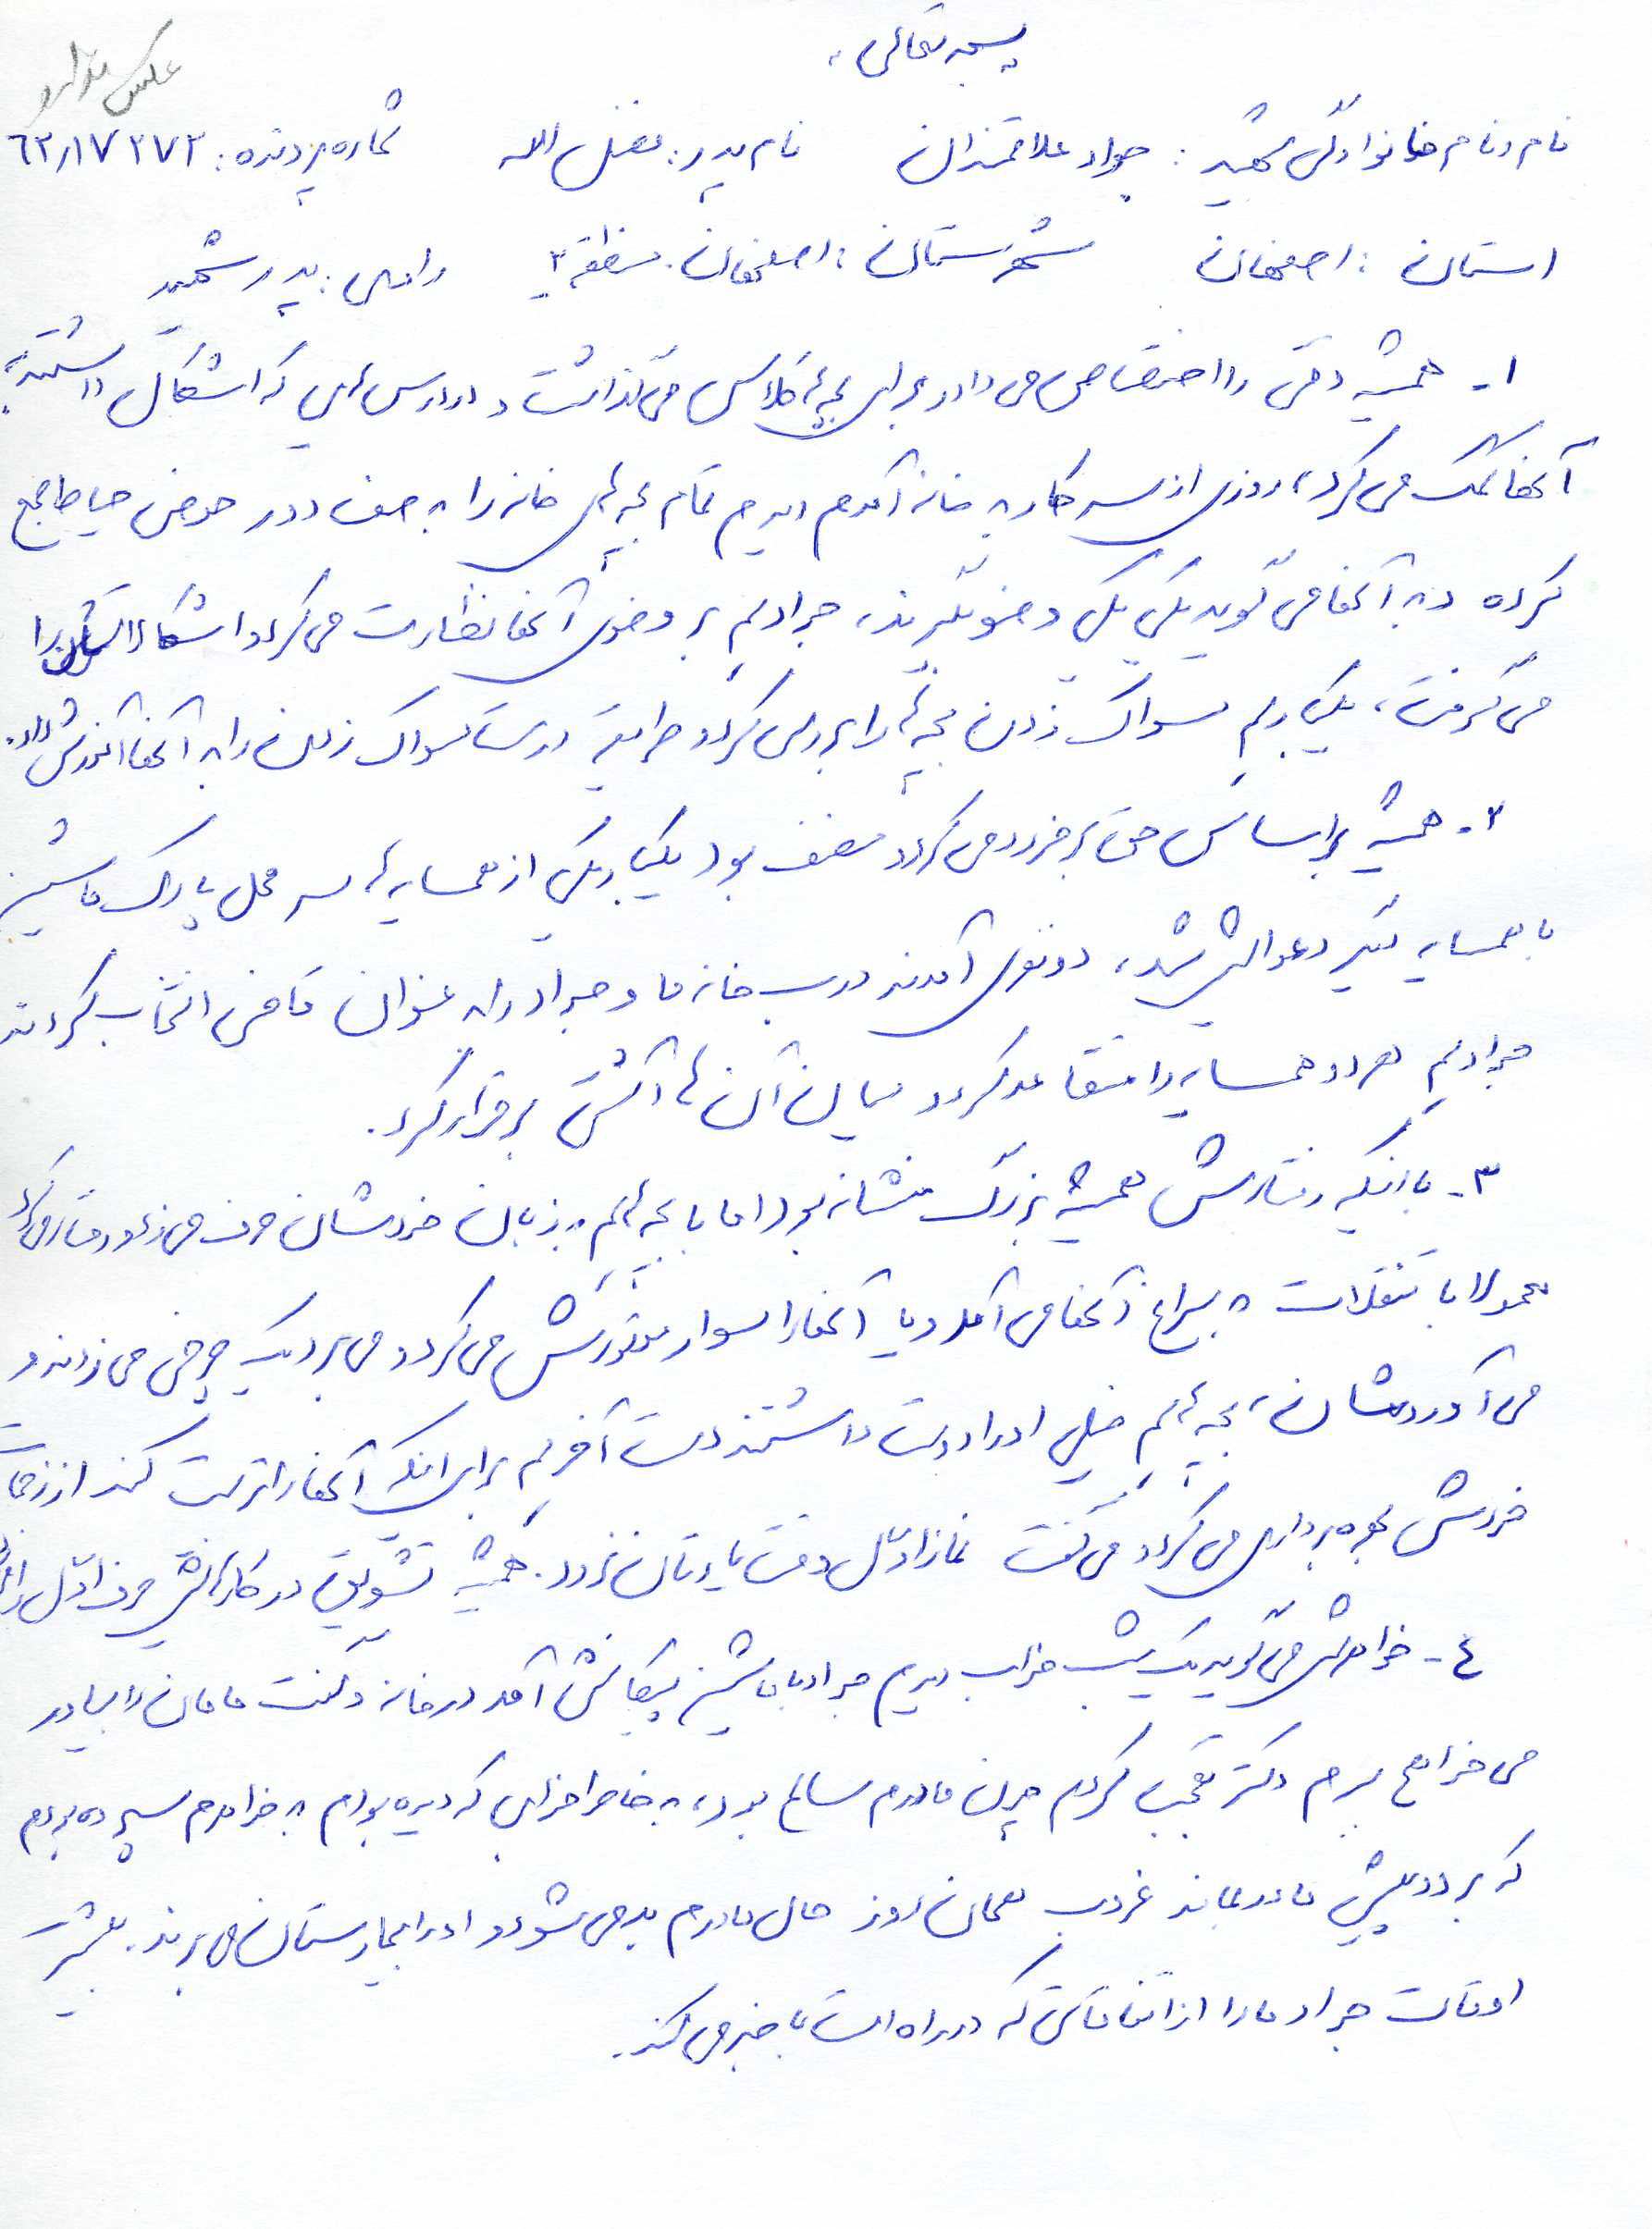 بسمه تعالی
عکس ندارد
نام و نام خانوادگی شهید: جواد علاقمندان نام پدر: فضل الله شماره پرونده: ٦٢٫١٧٢٧٢
استان: اصفهان شهرستان: اصفهان. منطقه ٢ راوی: پدر شهید
١- همیشه وقتی را اختصاص می داد و برای بچه های کلاس می گذاشت و در درس هایی که اشکال داشتند به
آنها کمک می کرد، روزی از سر کار به خانه آمدم دیدم تمام بچه های خانه را به صف دور حوض حیاط جمع
کرده و به آنها می گوید یکی یکی وضو بگیرند، جوادم بر وضوی آنها نظارت می کرد و اشکالاتشان را
می گرفت، یکبار هم مسواک زدن بچه ها را بررسی کرد و طریقه درست مسواک زدن را به آنها آموزش داد.
٢- همیشه براساس حق برخورد می کرد و منصف بود یکبار یکی از همسایه ها سر محل پارک ماشین
با همسایه دیگر دعوایش شد، دو نفری آمدند درب خانه ما و جواد را به عنوان قاضی انتخاب کردند
جوادم هر دو همسایه را متقاعد کرد و میان آن ها آشتی برقرار کرد.
٣- با اینکه رفتارش همیشه بزرگ منشانه بود اما با بچه ها هم به زبان خودشان حرف می زد و رفتار می کرد
معمولا با تنقلات به سراغ آنها می آمد و یا آنها را سوار موتورش می کرد و می برد یک چرخی می زدند و
می آوردشان، بچه ها هم خیلی او را دوست داشتند دست آخر هم برای اینکه آنها را تربیت کند از زحمات
خودش بهره برداری می کرد و می گفت نماز اول وقت یادتان نرود. همیشه تشویق در کارهایش حرف اول را
٤- خواهرش می گوید یک شب خواب دیدم جواد با ماشین پیکانش آمد در خانه و گفت مامان را بیاور
می خواهم ببرم دکتر تعجب کردم چون مادرم سالم بود، به خاطر خوابی که دیده بودم به خواهرم سپرده بودم
که برود پیش مادر بماند غروب همان روز حال مادرم بد می شود و او را بیمارستان می برند. بیشتر
اوقات جواد ما را از اتفاقاتی که در راه است با خبر می کند.